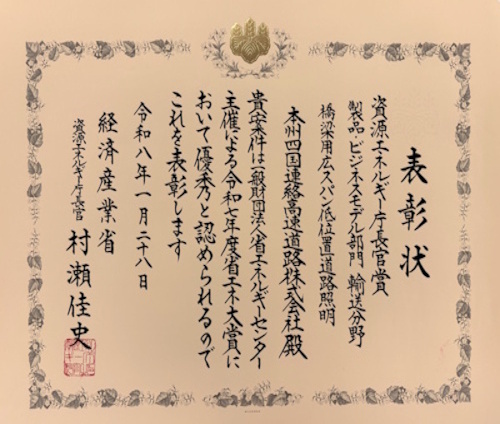 表彰状
資源エネルギー庁長官賞
製品・ビジネスモデル部門 輸送分野
橋梁用広スパン低位置道路照明
本州四国連絡高速道路株式会社 殿
貴案件は一般財団法人省エネルギーセンター
主催による令和七年度省エネ大賞に
おいて優秀と認められるので
これを表彰します
令和八年一月二十八日
経済産業省
資源エネルギー庁長官 村瀬佳史